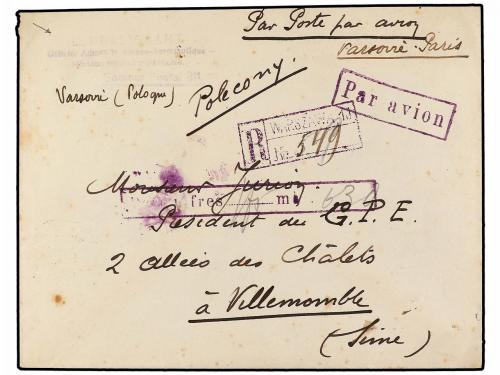 Par Poste par avion
Varsovie-Paris
Varsovie (Pologne)
Polecony.
Par avion
R WARSZAWA 19
№ 549
Monsieur Turion
fres m
Président du G.P.E.
2 allées des Châlets
à Villemomble
(Seine)